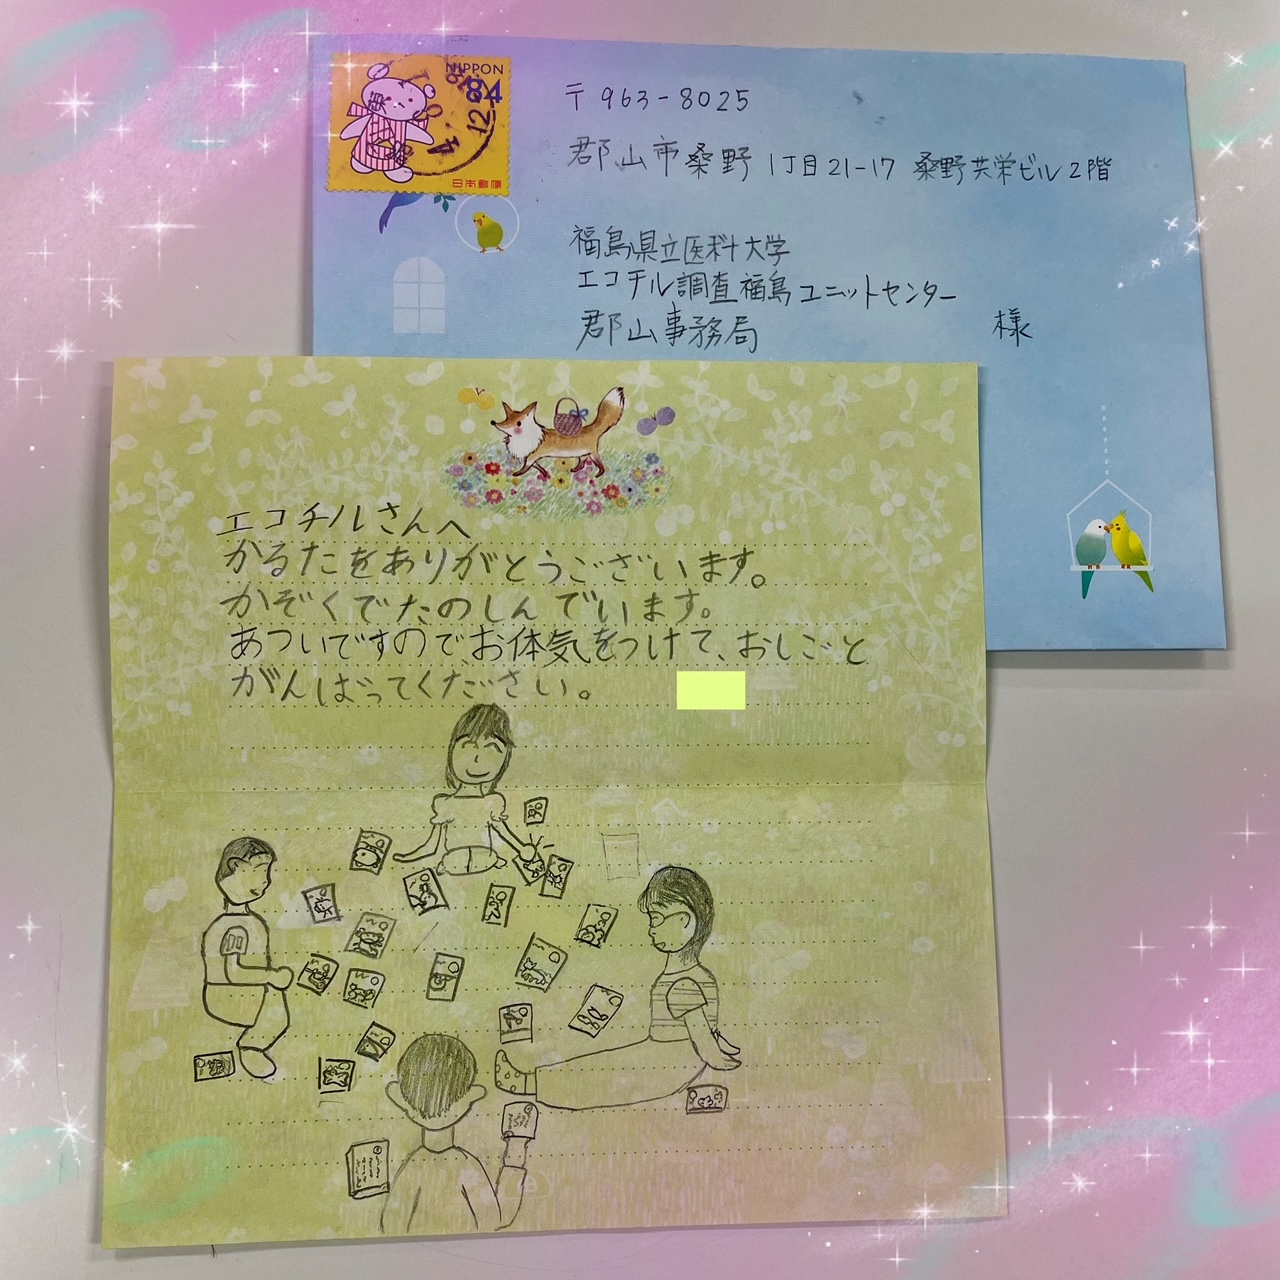 NIPPON
84
日本郵便
〒963-8025
郡山市桑野1丁目21-17 桑野共栄ビル2階
福島県立医科大学
エコチル調査福島ユニットセンター
郡山事務局 様
エコチルさんへ
かるたをありがとうございます。
かぞくでたのしんでいます。
あついですのでお体気をつけて、おしごと
がんばってください。